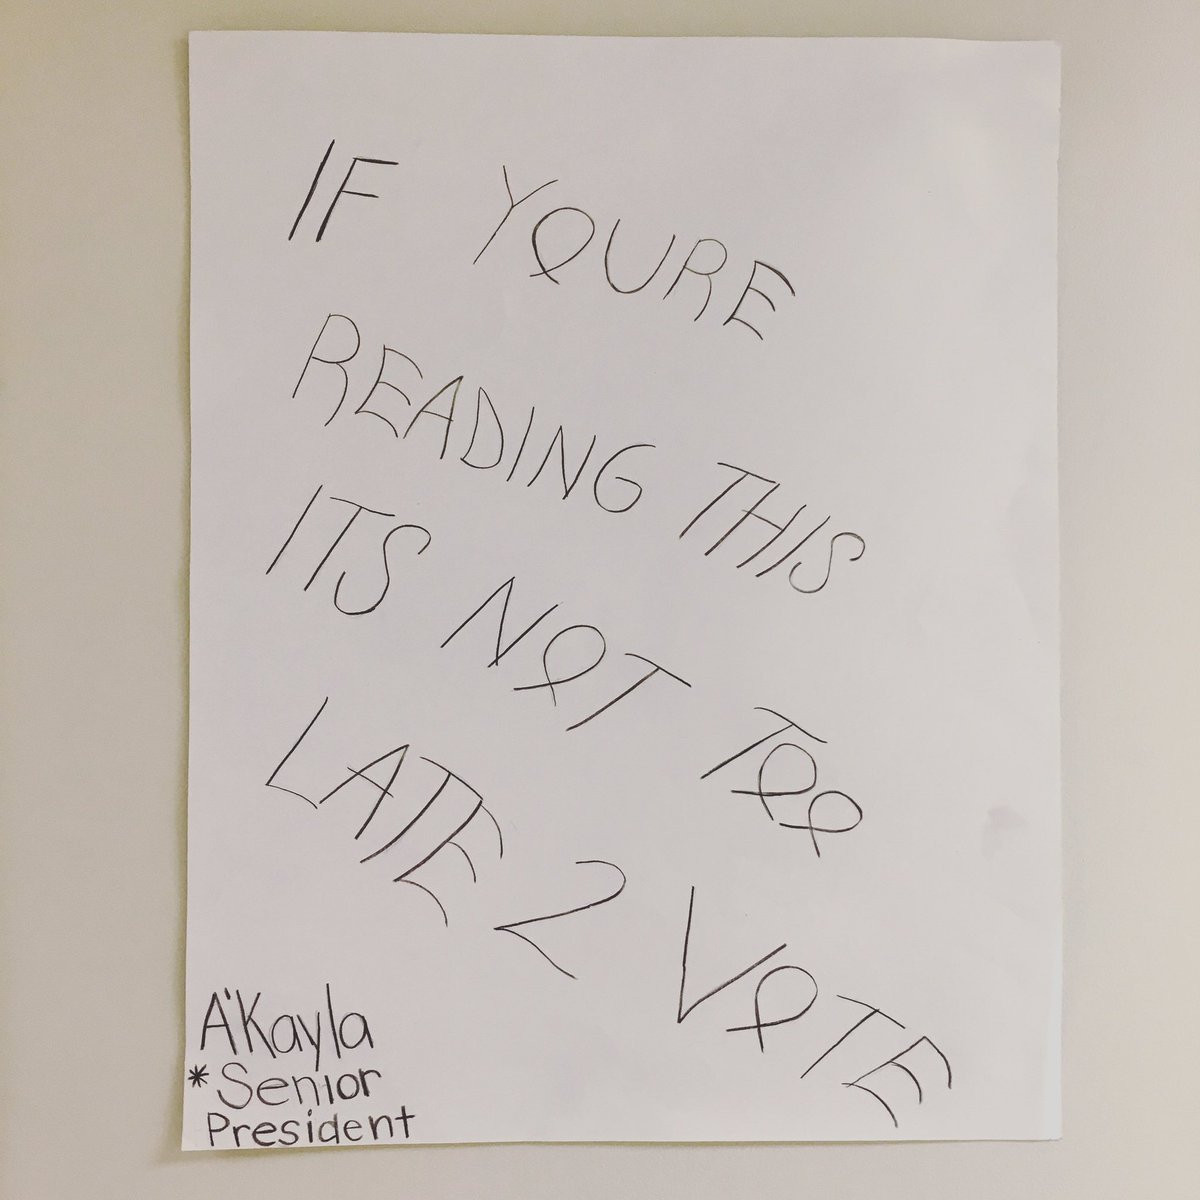 IF YOURE
READING THIS
ITS NOT TOO
LATE 2 VOTE
A'Kayla
*Senior
President